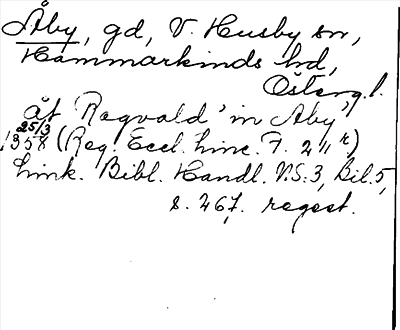 Åby, gd, V. Husby sn,
Hammarkinds hd,
Österg.l.
åt "Ragvald" in Aby,
25/3
1358 (Reg. Eccl. Linc. F. 2 11 r)
Link. Bibl. Handl. N.S:3, Bil.5,
s. 267, regest.